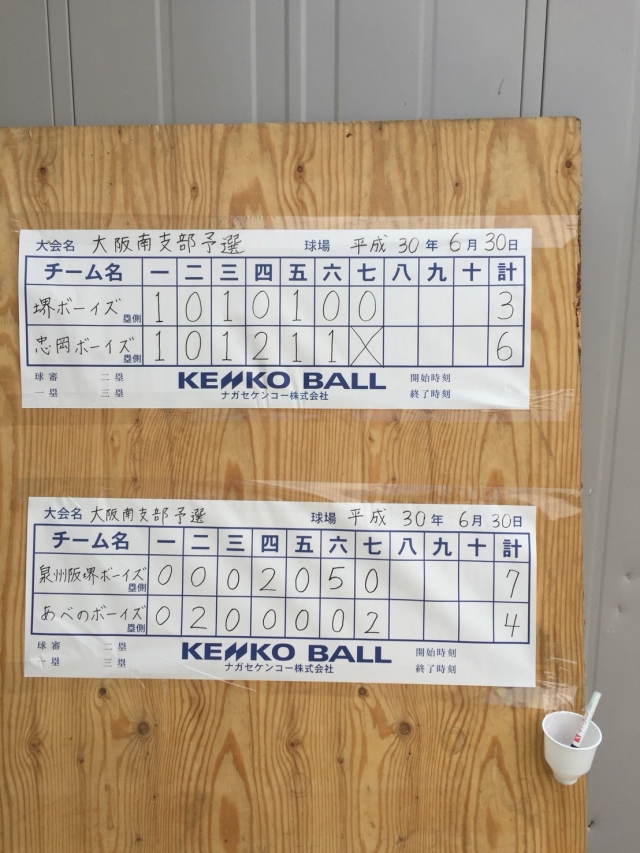 大会名 大阪南支部予選 球場 平成 30 年 6 月 30 日
チーム名 一 二 三 四 五 六 七 八 九 十 計
堺ボーイズ 塁側 1 0 1 0 1 0 0 3
忠岡ボーイズ 塁側 1 0 1 2 1 1 X 6
球審 二塁 KENKO BALL 開始時刻
一塁 三塁 ナガセケンコー株式会社 終了時刻
大会名 大阪南支部予選 球場 平成 30 年 6 月 30 日
チーム名 一 二 三 四 五 六 七 八 九 十 計
泉州阪堺ボーイズ 塁側 0 0 0 2 0 5 0 7
あべのボーイズ 塁側 0 2 0 0 0 0 2 4
球審 二塁 KENKO BALL 開始時刻
一塁 三塁 ナガセケンコー株式会社 終了時刻